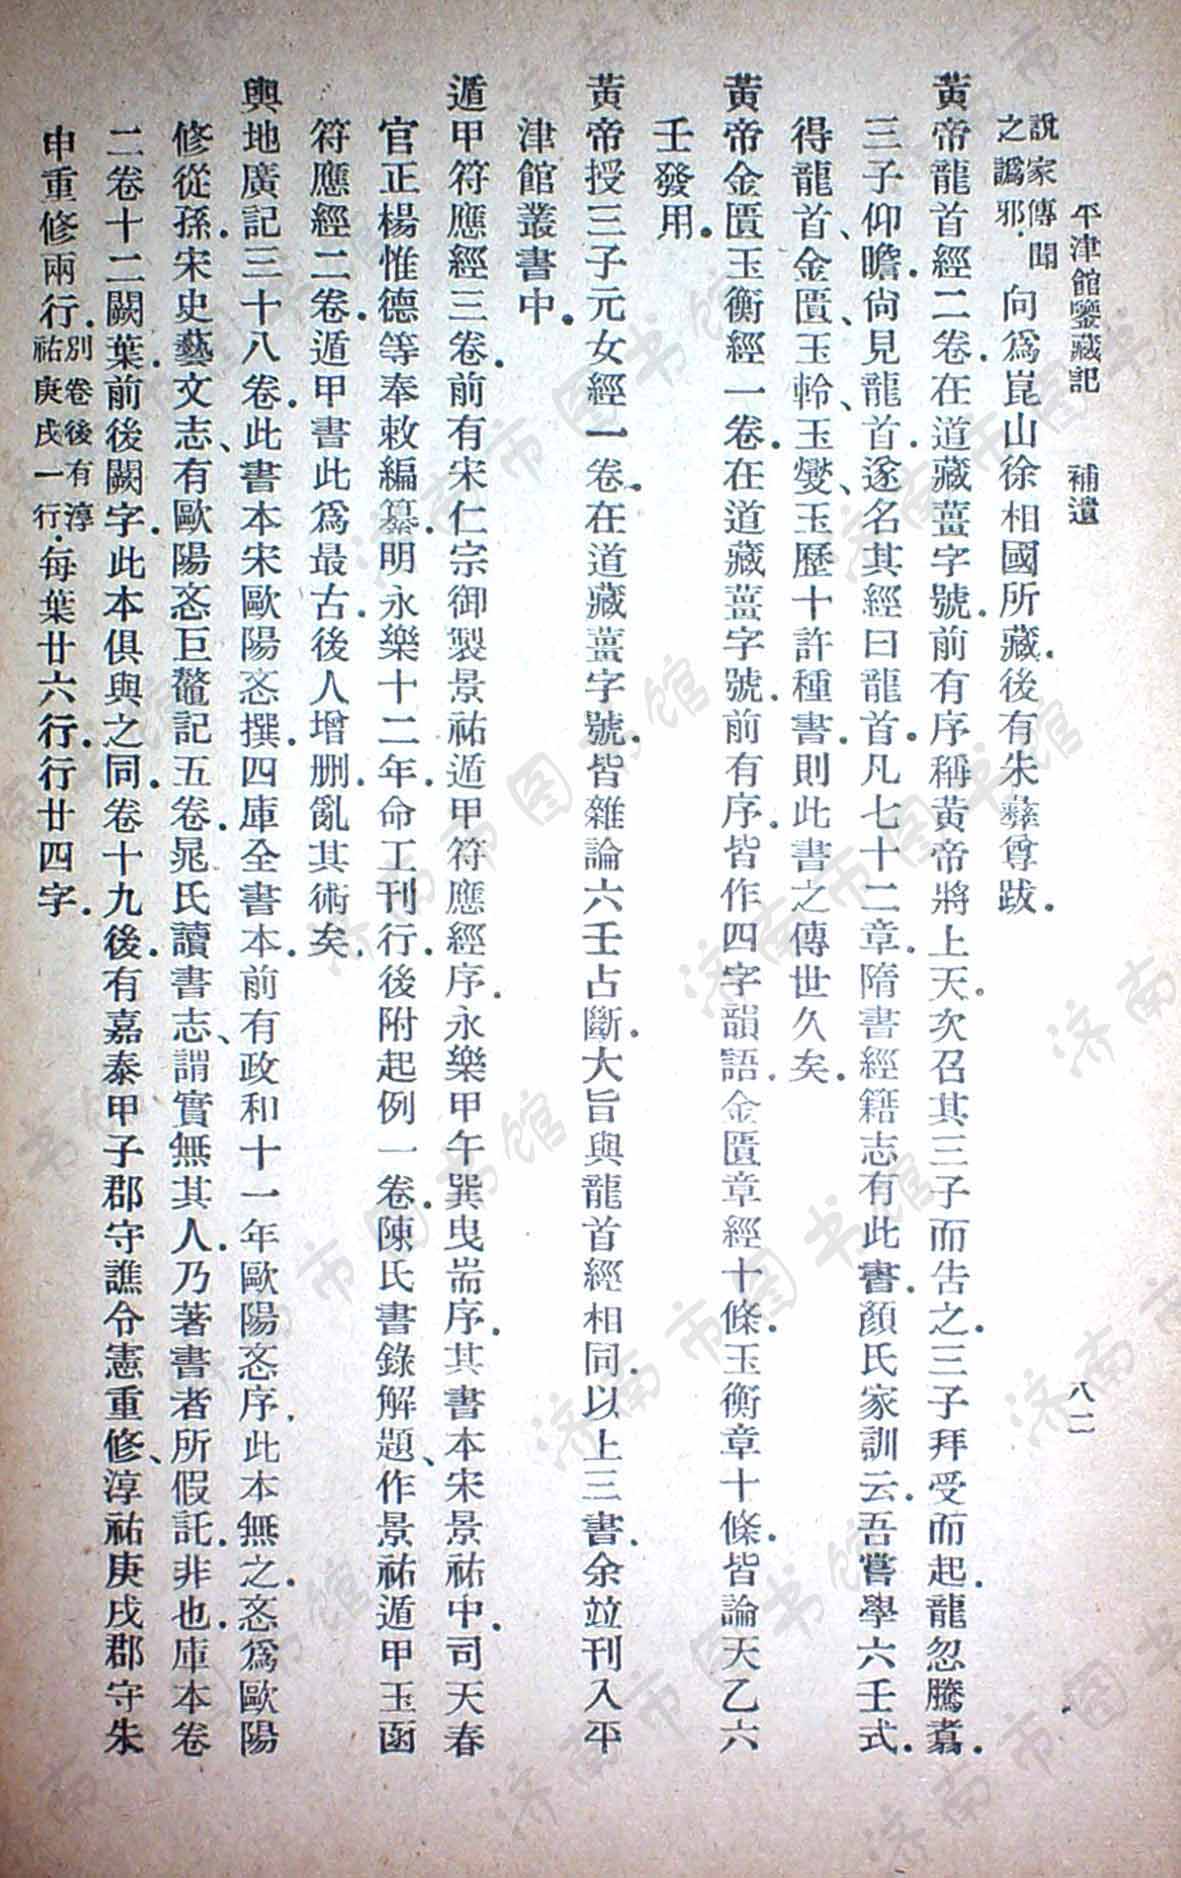 平津館鑒藏記　補遺　八二
說家傳聞
之譌邪．向爲崑山徐相國所藏．後有朱彝尊跋．
黃帝龍首經二卷．在道藏薑字號．前有序稱黃帝將上天．次召其三子而告之．三子拜受而起．龍忽騰翥．
三子仰瞻．尙見龍首．遂名其經曰龍首．凡七十二章．隋書經籍志有此書．顏氏家訓云．吾嘗學六壬式．
得龍首、金匱、玉軨、玉燮、玉歷十許種書．則此書之傳世久矣．
黃帝金匱玉衡經一卷．在道藏薑字號．前有序．皆作四字韻語．金匱章經十條．玉衡章十條．皆論天乙六
壬發用．
黃帝授三子元女經一卷．在道藏薑字號．皆雜論六壬占斷．大旨與龍首經相同．以上三書．余竝刊入平
津館叢書中．
遁甲符應經三卷．前有宋仁宗御製景祐遁甲符應經序．永樂甲午巽曳耑序．其書本宋景祐中．司天春
官正楊惟德等奉敕編纂．明永樂十二年．命工刊行．後附起例一卷．陳氏書錄解題、作景祐遁甲玉函
符應經二卷．遁甲書此爲最古．後人增刪．亂其術矣．
輿地廣記三十八卷．此書本宋歐陽忞撰．四庫全書本．前有政和十一年歐陽忞序．此本無之．忞爲歐陽
修從孫．宋史藝文志、有歐陽忞巨鼇記五卷．晁氏讀書志、謂實無其人．乃著書者所假託．非也．庫本卷
二卷十二闕葉．前後闕字．此本俱與之同．卷十九後．有嘉泰甲子郡守譙令憲重修、淳祐庚戌郡守朱
申重修兩行．別卷後有淳
祐庚戌一行．每葉廿六行．行廿四字．